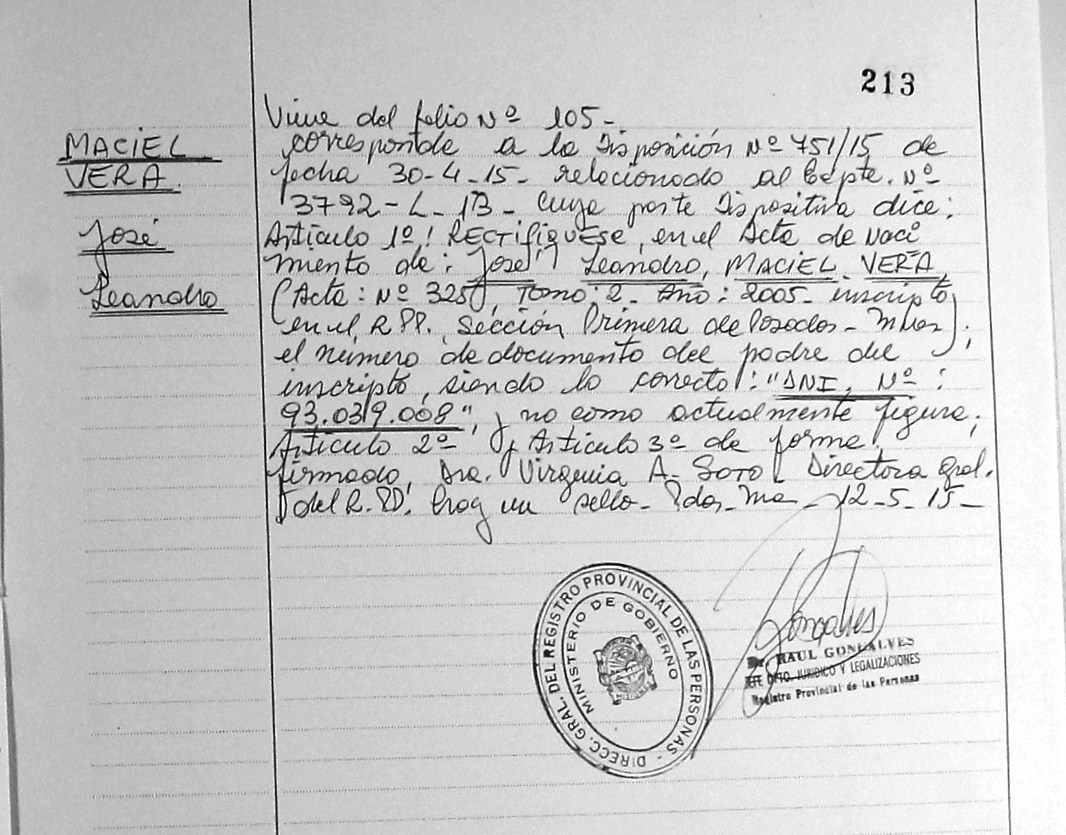 213
MACIEL
VERA
José
Leandro
Viene del folio Nº 105-
corresponde a la Disposición Nº 751/15 de
fecha 30-4-15- relacionado al Expte. Nº
3792-L-13- cuya parte Dispositiva dice:
Artículo 1º: RECTIFIQUESE, en el Acta de naci
miento de: José Leandro, MACIEL VERA
(Acta: Nº 325, Tomo: 2- Año: 2005- inscripto
en el R.P.P. Sección Primera de Posadas - Mnes);
el número de documento del padre del
inscripto, siendo lo correcto: "DNI. Nº:
93.039.008", y no como actualmente figura;
Artículo 2º y Artículo 3º de forma.
firmado, Dra. Virginia A. SOTO Directora Gral.
del R.PP. hay un sello- Pdas- Mnes 12-5-15-
DIRECC. GRAL. DEL REGISTRO PROVINCIAL DE LAS PERSONAS -
MINISTERIO DE GOBIERNO
Dr. RAUL GONCALVES
JEFE DPTO. JURIDICO Y LEGALIZACIONES
Registro Provincial de las Personas